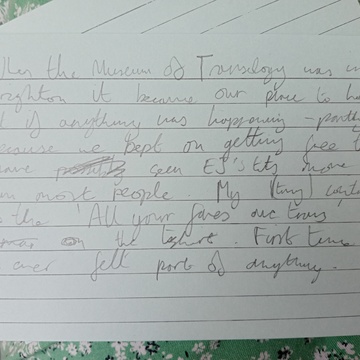 the Museum of Transology was in
Brighton it became our place to
if anything was happening -
because we kept on getting free
have seen EJ's
most people. My [tiny]
the 'All your faves are trans'
on the tshirt. First time
ever felt part of anything.